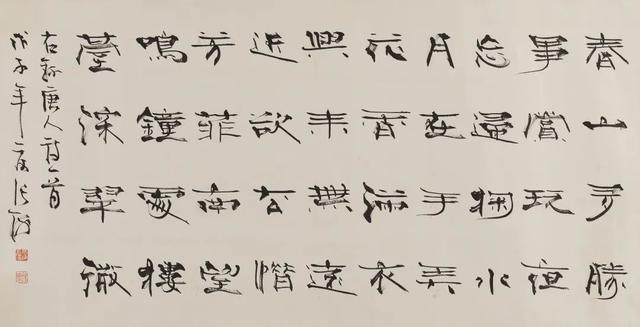 春山多勝
事賞玩夜
忘歸掬水
月在手弄
花香滿衣
興來無遠
近欲去惜
芳菲南望
鳴鐘處樓
臺深翠微
右錄唐人詩一首
戊子年夏張海